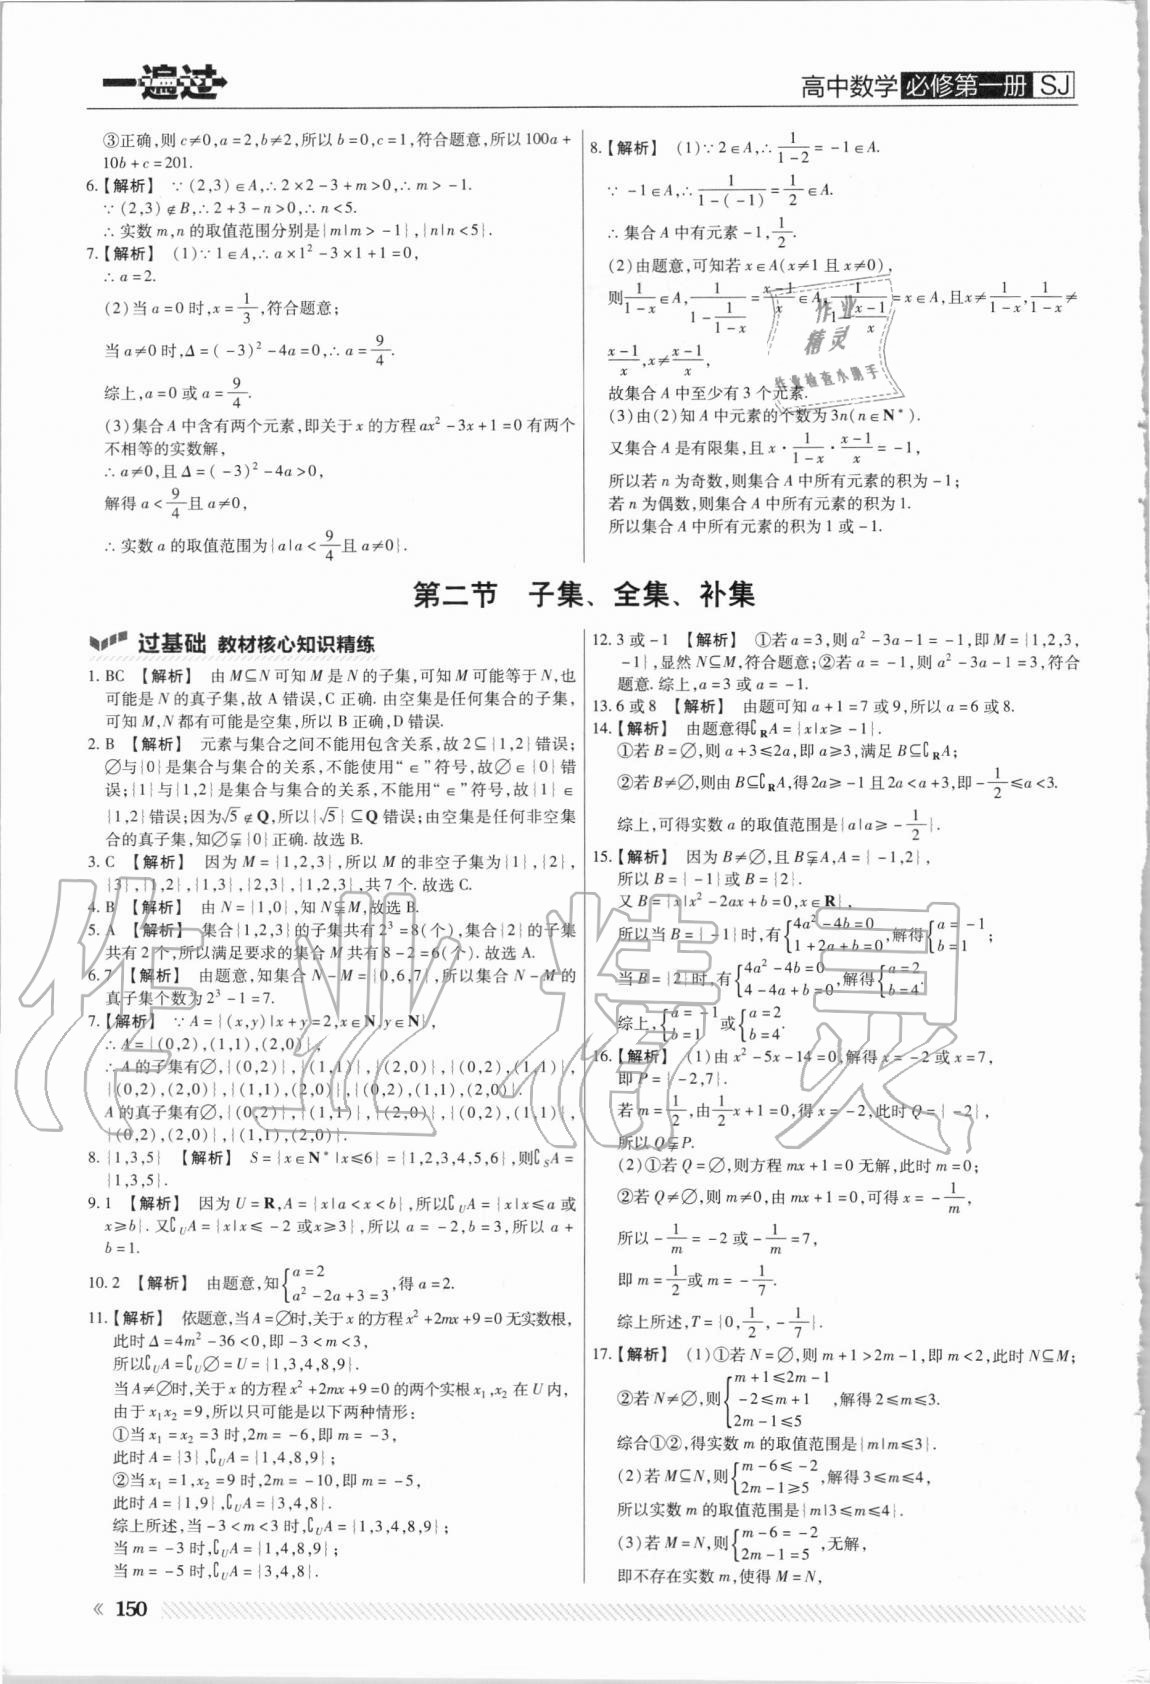 一遍过
高中数学 必修第一册 SJ
③正确,则c≠0,a=2,b≠2,所以b=0,c=1,符合题意,所以100a+
10b+c=201.
6.【解析】 ∵(2,3)∈A,∴2×2-3+m>0,∴m>-1.
∵(2,3)∉B,∴2+3-n>0,∴n<5.
∴实数m,n的取值范围分别是{m|m>-1},{n|n<5}.
7.【解析】 (1)∵1∈A,∴a×1²-3×1+1=0,
∴a=2.
(2)当a=0时,x=1/3,符合题意;
当a≠0时,Δ=(-3)²-4a=0,∴a=9/4.
综上,a=0或a=9/4.
(3)集合A中含有两个元素,即关于x的方程ax²-3x+1=0有两个
不相等的实数解,
∴a≠0,且Δ=(-3)²-4a>0,
解得a<9/4且a≠0,
∴实数a的取值范围为{a|a<9/4且a≠0}.
8.【解析】 (1)∵2∈A,∴1/(1-2)=-1∈A.
∵-1∈A,∴1/(1-(-1))=1/2∈A.
∴集合A中有元素-1,1/2.
(2)由题意,可知若x∈A(x≠1且x≠0),
则1/(1-x)∈A,1/(1-1/(1-x))=(x-1)/x∈A,1/(1-(x-1)/x)=x∈A,且x≠1/(1-x),1/(1-x)≠
(x-1)/x,x≠(x-1)/x,
故集合A中至少有3个元素.
(3)由(2)知A中元素的个数为3n(n∈N*).
又集合A是有限集,且x·1/(1-x)·(x-1)/x=-1,
所以若n为奇数,则集合A中所有元素的积为-1;
若n为偶数,则集合A中所有元素的积为1.
所以集合A中所有元素的积为1或-1.
作业
精灵
作业检查小助手
第二节 子集、全集、补集
过基础 教材核心知识精练
1. BC 【解析】 由M⊆N可知M是N的子集,可知M可能等于N,也
可能是N的真子集,故A错误,C正确.由空集是任何集合的子集,
可知M,N都有可能是空集,所以B正确,D错误.
2. B 【解析】 元素与集合之间不能用包含关系,故2⊆{1,2}错误;
∅与{0}是集合与集合的关系,不能使用“∈”符号,故∅∈{0}错
误;{1}与{1,2}是集合与集合的关系,不能用“∈”符号,故{1}∈
{1,2}错误;因为√5∉Q,所以{√5}⊆Q错误;由空集是任何非空集
合的真子集,知∅⫋{0}正确.故选B.
3. C 【解析】 因为M={1,2,3},所以M的非空子集为{1},{2},
{3},{1,2},{1,3},{2,3},{1,2,3},共7个.故选C.
4. B 【解析】 由N={1,0},知N⫋M,故选B.
5. A 【解析】 集合{1,2,3}的子集共有2³=8(个),集合{2}的子集
共有2个,所以满足要求的集合M共有8-2=6(个).故选A.
6. 7 【解析】 由题意,知集合N-M={0,6,7},所以集合N-M的
真子集个数为2³-1=7.
7.【解析】 ∵A={(x,y)|x+y=2,x∈N,y∈N},
∴A={(0,2),(1,1),(2,0)},
∴A的子集有∅,{(0,2)},{(1,1)},{(2,0)},{(0,2),(1,1)},
{(0,2),(2,0)},{(1,1),(2,0)},{(0,2),(1,1),(2,0)}.
A的真子集有∅,{(0,2)},{(1,1)},{(2,0)},{(0,2),(1,1)},
{(0,2),(2,0)},{(1,1),(2,0)}.
8. {1,3,5} 【解析】 S={x∈N*|x≤6}={1,2,3,4,5,6},则∁SA=
{1,3,5}.
9. 1 【解析】 因为U=R,A={x|a<x<b},所以∁UA={x|x≤a或
x≥b}.又∁UA={x|x≤-2或x≥3},所以a=-2,b=3,所以a+
b=1.
10. 2 【解析】 由题意,知{a=2 a²-2a+3=3,得a=2.
11.【解析】 依题意,当A=∅时,关于x的方程x²+2mx+9=0无实数根,
此时Δ=4m²-36<0,即-3<m<3,
所以∁UA=∁U∅=U={1,3,4,8,9}.
当A≠∅时,关于x的方程x²+2mx+9=0的两个实根x₁,x₂在U内,
由于x₁x₂=9,所以只可能是以下两种情形:
①当x₁=x₂=3时,2m=-6,即m=-3,
此时A={3},∁UA={1,4,8,9};
②当x₁=1,x₂=9时,2m=-10,即m=-5,
此时A={1,9},∁UA={3,4,8}.
综上所述,当-3<m<3时,∁UA={1,3,4,8,9};
当m=-3时,∁UA={1,4,8,9};
当m=-5时,∁UA={3,4,8}.
12. 3或-1 【解析】 ①若a=3,则a²-3a-1=-1,即M={1,2,3,
-1},显然N⊆M,符合题意;②若a=-1,则a²-3a-1=3,符合
题意.综上,a=3或a=-1.
13. 6或8 【解析】 由题可知a+1=7或9,所以a=6或8.
14.【解析】 由题意得∁RA={x|x≥-1}.
①若B=∅,则a+3≤2a,即a≥3,满足B⊆∁RA;
②若B≠∅,则由B⊆∁RA,得2a≥-1且2a<a+3,即-1/2≤a<3.
综上,可得实数a的取值范围是{a|a≥-1/2}.
15.【解析】 因为B≠∅,且B⫋A,A={-1,2},
所以B={-1}或B={2}.
又B={x|x²-2ax+b=0,x∈R},
所以当B={-1}时,有{4a²-4b=0 1+2a+b=0,解得{a=-1 b=1;
当B={2}时,有{4a²-4b=0 4-4a+b=0,解得{a=2 b=4.
综上,{a=-1 b=1或{a=2 b=4.
16.【解析】 (1)由x²-5x-14=0,解得x=-2或x=7,
即P={-2,7}.
若m=1/2,由1/2x+1=0,得x=-2,此时Q={-2},
所以Q⫋P.
(2)①若Q=∅,则方程mx+1=0无解,此时m=0;
②若Q≠∅,则m≠0,由mx+1=0,可得x=-1/m,
所以-1/m=-2或-1/m=7,
即m=1/2或m=-1/7.
综上所述,T={0,1/2,-1/7}.
17.【解析】 (1)①若N=∅,则m+1>2m-1,即m<2,此时N⊆M;
②若N≠∅,则{m+1≤2m-1 -2≤m+1 2m-1≤5,解得2≤m≤3.
综合①②,得实数m的取值范围是{m|m≤3}.
(2)若M⊆N,则{m-6≤-2 2m-1≥5,解得3≤m≤4,
所以实数m的取值范围是{m|3≤m≤4}.
(3)若M=N,则{m-6=-2 2m-1=5,无解,
即不存在实数m,使得M=N,
作业精灵
« 150